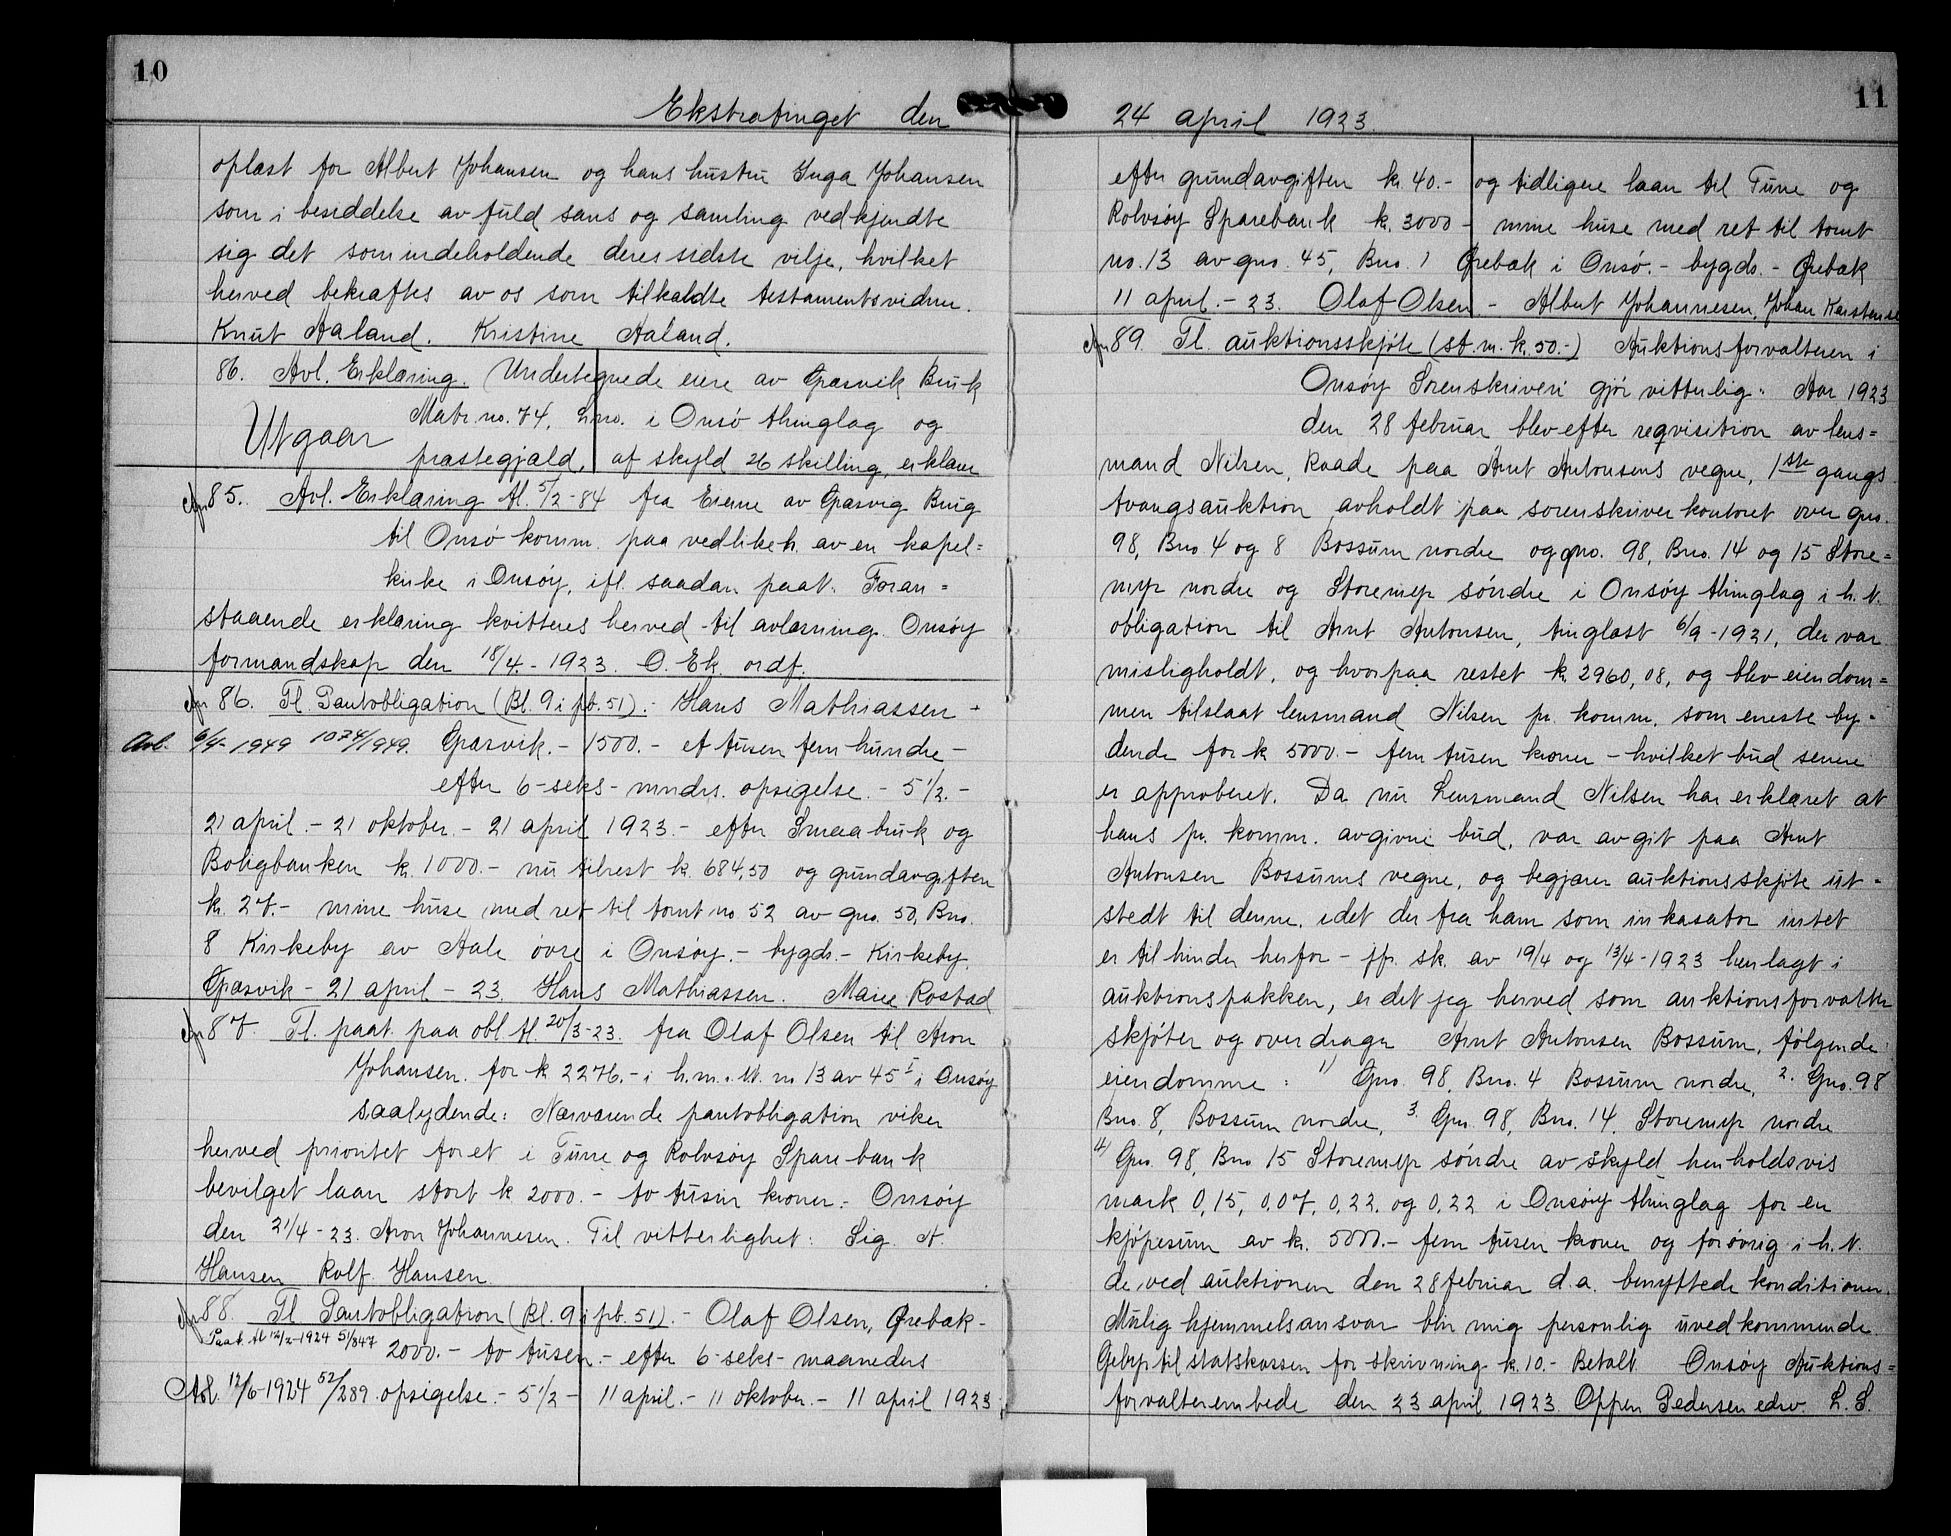 10
Ekstratinget den
oplæst for Albert Johansen og hans hustru Inga Johansen
som i besiddelse av fuld sans og samling vedkjendte
sig det som indeholdende deres sidste vilje, hvilket
herved bekræftes av os som tilkaldte testamentsvidner.
Knut Aaland. Kristine Aaland.
86. Avl. Erklæring. Undertegnede eiere av Græsvik Bruk
Matr. no. 74, Lno. i Onsø thinglag og
Utgaar
præstegjæld, af skyld 26 skilling, erklære
85. Avl. Erklæring tl. 5/2-84 fra Eierne av Græsvig Brug
til Onsø komm. paa vedlikeh. av en kapel=
kirke i Onsøy, ifl. saadan paat. Foran=
staaende erklæring kvitteres herved til avlæsning. Onsøy
formandskap den 18/4-1923. O. Ek. ordf.
86. Tl. Pantobligation (Bl. 9 i pb. 51).- Hans Mathiassen -
Avl. 6/4-1949 1074/1949. Græsvik.- 1500.- et tusen fem hundre -
efter 6-seks- mndrs. opsigelse.- 5 1/2.-
21 april.- 21 oktober.- 21 april 1923.- efter Smaabruk og
Boligbanken k. 1000.- nu tilrest k. 684,50 og grundavgiften
kr. 27.- mine huse med ret til tomt no 52 av gno. 50, Bno.
8 Kirkeby av Aale øvre i Onsøy.- bygds.- Kirkeby.
Græsvik - 21 april - 23. Hans Mathiassen. Marie Rostad
87. Tl. paat. paa obl. tl. 20/3-23. fra Olaf Olsen til Aron
Johansen. for k 2276.- i h.m. tt. no 13 av 45 I i Onsøy
saalydende: Nærværende pantobligation viker
herved prioritet for et i Tune og Rolvsøy Sparebank
bevilget laan stort k 2000.- to tusin kroner.- Onsøy
den 21/4-23. Aron Johannesen. Til vitterlighet: Sig. A.
Hansen Rolf Hansen.
88. Tl Pantobligation (Bl. 9 i pb. 51).- Olaf Olsen, Ørebæk-
Paat. tl 12/2-1924 51/847
2000.- to tusen.- efter 6-seks- maaneders
Avl. 12/6-1924 52/289. opsigelse.- 5 1/2 - 11 april.- 11 oktober.- 11 april 1923
11
24 april 1923.
efter grundavgiften k. 40.- og tidligere laan til Tune og
Rolvsøy Sparebank k. 3000.- mine huse med ret til tomt
no. 13 av gno. 45, Bno. 1 Ørebæk i Onsø.- bygds.- Ørebæk
11 april.- 23. Olaf Olsen - Albert Johannesen, Johan Karstensen
89. Tl. auktionsskjøte (st. m. k. 50.-) Auktionsforvalteren i
Onsøy Sorenskriveri gjør vitterlig: Aar 1923
den 28 februar blev efter reqvisition av lens=
mand Nilsen, Raade paa Arnt Antonsens vegne, 1ste gangs
tvangsauktion avholdt paa sorenskriverkontoret over gno.
98, Bno. 4 og 8 Bossum nordre og gno. 98, Bno. 14 og 15 Store=
myr nordre og Storemyr søndre i Onsøy thinglag i h. t.
obligation til Arnt Antonsen, tinglæst 6/9-1921, der var
misligholdt, og hvorpaa restet k. 2960,08, og blev eiendom=
men tilslaat lensmand Nilsen pr. komm. som eneste by=
dende for k 5000.- fem tusen kroner - hvilket bud senere
er approberet. Da nu Lensmand Nilsen har erklæret at
hans pr. komm. avgivne bud, var avgit paa Arnt
Antonsen Bossums vegne, og begjærer auktionsskjøte ut=
stedt til denne, idet der fra ham som inkasator intet
er til hinder herfor - jfr. sk. av 19/4 og 13/4-1923 henlagt i
auktionspakken, er det jeg herved som auktionsforvalter
skjøter og overdrager Arnt Antonsen Bossum, følgende
eiendomme: 1) Gno. 98, Bno. 4 Bossum nordre, 2. Gno. 98
Bno 8, Bossum nordre, 3. Gno. 98, Bno. 14, Storemyr nordre
4) Gno. 98, Bno 15 Storemyr søndre av skyld henholdsvis
mark 0,15, 0,07, 0,22, og 0,22 i Onsøy thinglag for en
kjøpesum av k. 5000.- fem tusen kroner og forøvrig i h. t.
de ved auktionen den 28 februar d.a. benyttede konditioner.
Mulig hjemmelsansvar blir mig personlig uvedkommende.
Gebyr til statskassen for skrivning k. 10.- Betalt. Onsøy Auktions=
forvalterembede den 23 april 1923. Oppen Pedersen edsv. L. S.